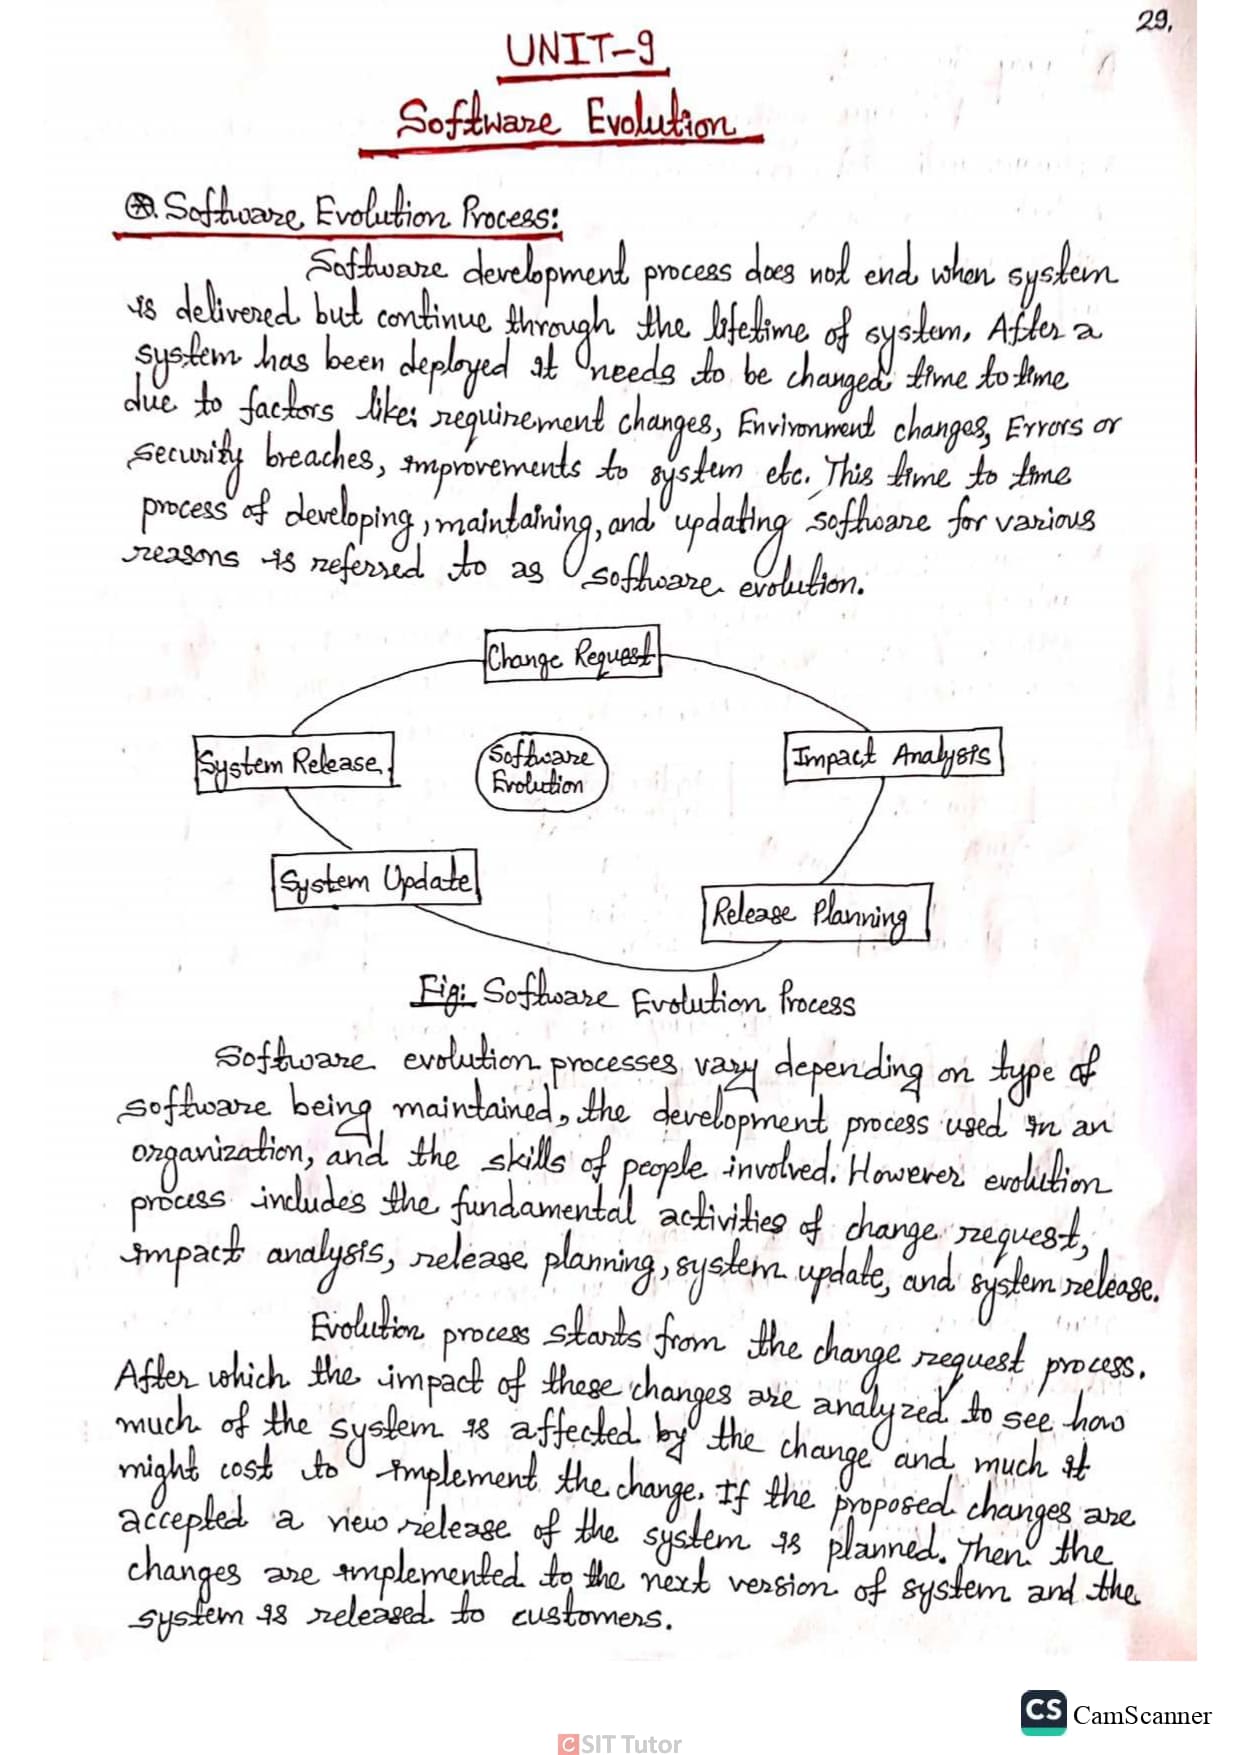 29.
UNIT-9
Software Evolution
⊛. Software Evolution Process:
Software development process does not end when system
is delivered but continue through the lifetime of system. After a
system has been deployed it needs to be changed time to time
due to factors like: requirement changes, Environment changes, Errors or
security breaches, improvements to system etc. This time to time
process of developing, maintaining, and updating software for various
reasons is referred to as software evolution.
Change Request
System Release
Software
Evolution
Impact Analysis
System Update
Release Planning
Fig: Software Evolution Process
Software evolution processes vary depending on type of
software being maintained, the development process used in an
organization, and the skills of people involved. However evolution
process includes the fundamental activities of change request,
impact analysis, release planning, system update, and system release.
Evolution process starts from the change request process.
After which the impact of these changes are analyzed to see how
much of the system is affected by the change and much it
might cost to implement the change. If the proposed changes are
accepted a new release of the system is planned. Then the
changes are implemented to the next version of system and the
system is released to customers.
CS CamScanner
CSIT Tutor